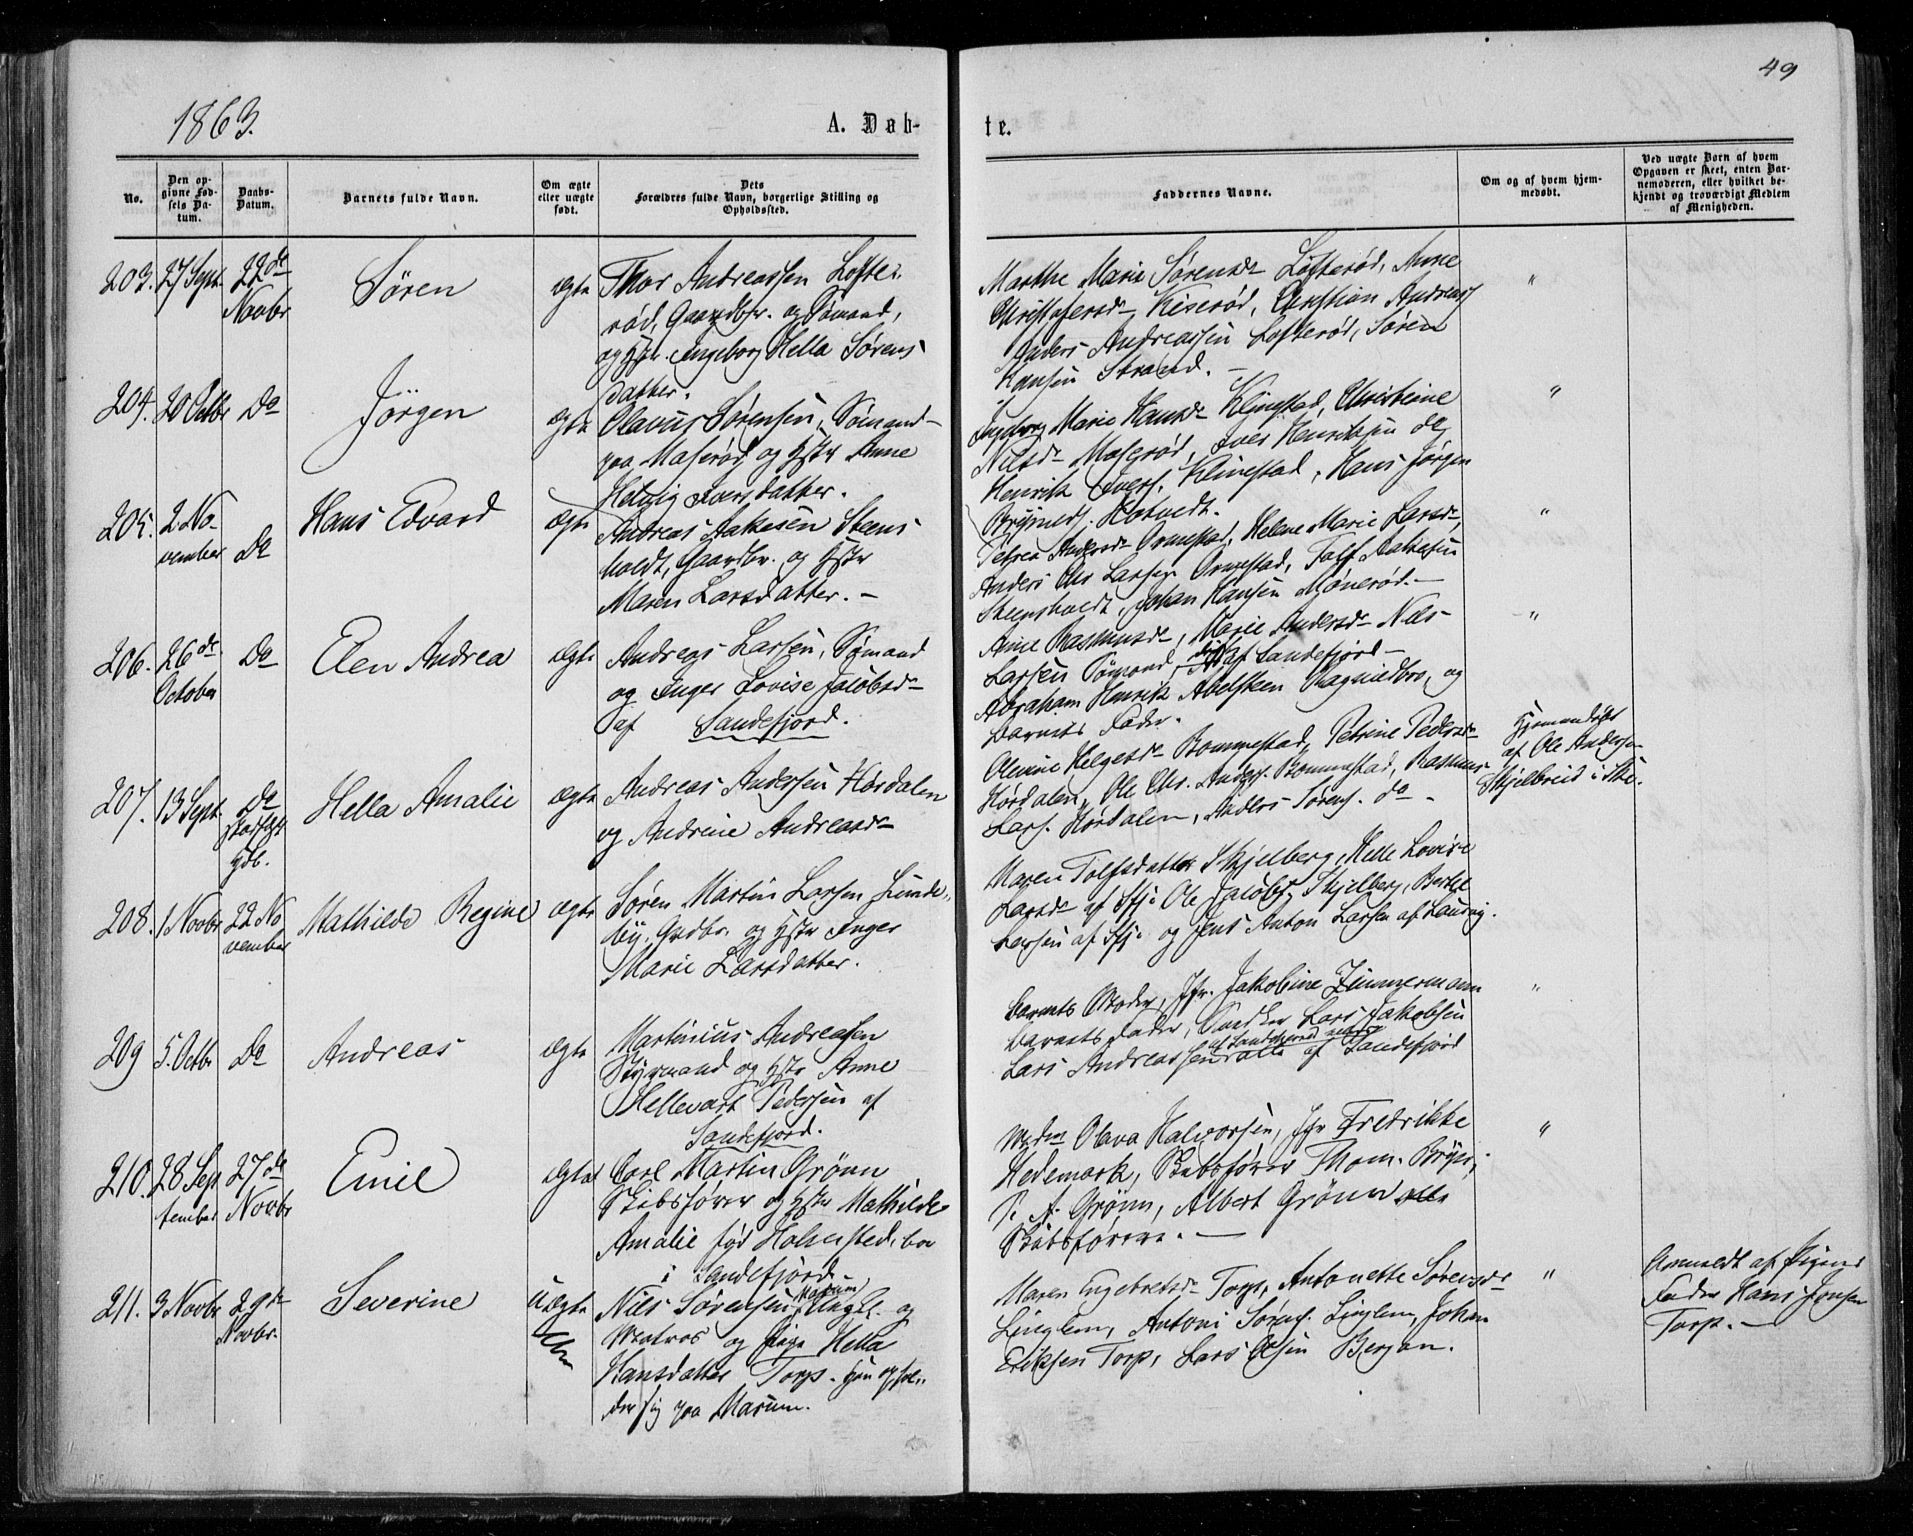 49
1863.
A. Døb-
te.
No.
Den op-
givne Fød-
sels Da-
tum.
Daabs-
Datum.
Barnets fulde Navn.
Om ægte
eller uægte
født.
Dets
Forældres fulde Navn, borgerlige Stilling og
Opholdssted.
Faddernes Navne.
Om og af hvem hjem-
medøbt.
Ved uægte Børn af hvem
Opgaven er skeet, enten Bar-
nemoderen, eller hvilket be-
kjendt og troværdigt Medlem
af Menigheden.
203. 27 Sept. 22de Novbr Søren ægte
Thor Andreassen Lofte-
rød, Gaardbr. og Sømand,
og Hstr. Ingeborg Hella Sørens-
datter.
Marthe Marie Sørensdr Lofterød, Anne
Christofersdr Kiserød, Christian Andreas
Anders Andreassen Lofterød, Søren
Hansen Strand. -
"
204. 20 Octbr Do Jörgen ægte
Olavus Sørensen, Sømand
paa Maserød og Hstr Anne
Helvig Iversdatter.
Ingeborg Marie Hansdr Klinestad, Christine
Nilsdr Maserød, Iver Henriksen og
Henrik Ivers. Klinestad, Hans Jørgen
Hotvedt.
"
205. 2. No-
vember Do Hans Edvard ægte
Andreas Aakesen Steens-
holdt, Gaardbr. og Hstr
Maren Larsdatter. -
Petrea Andersdr Ormestad, Helene Marie Larsdr
Anders Chr Larsen Ormestad, Tolf Aakesen
Steensholdt, Johan Hansen Mønerød. -
"
206. 26de
October Do Elen Andrea ægte
Andreas Larsen, Sømand
og Inger Lovise Jacobsdr
af Sandefjord.
Anne Rasmusdr, Marie Andersdr Nils
Larsen Sømand, af Sandefjord -
Abraham Henrik Abelsteen og
Barnets Fader.
"
207. 13 Sept. Do
Hdb. Hella Amalie ægte
Andreas Andersen Hørdalen
og Andrine Andreasdr
Olevine Helgesdr Bommestad, Petrine Pedersdr
Hørdalen, Ole Chr. Anders. Bommestad, Rasmus
Lars. Hørdalen, Anders Sørens. do -
Hjemmedøbt
af Ole Andersen
Skjelbred i Ski.
208. 1 Novbr 22 No-
vember Mathilde Regine ægte
Søren Martin Larsen Lunde-
by, Grdbr. og Hstr Inger
Marie Larsdatter.
Maren Tolfsdatter Skjelberg, Helle Lovise
Larsdr af Sfj. Ole Jacobs. Skjelberg, Bertel
Larsen af Sfj. og Jens Anton Larsen af Laurvig.
209 5. Octbr Do Andreas ægte
Martinius Andreasen
Styrmand og Hstr Anne
Hellevart Pedersen af
Sandefjord.
Barnets Moder, Jfr. Jakobine Zimmermann
Barnets Fader, Snedker Lars Jakobsen
Lars Andreassen alle af Sandefjord
"
210. 28 Sep-
tember 27de
Novbr Emil ægte
Carl Martin Grönn
Skibsfører og Hstr Mathilde
Amalie født Holmsted, boe
i Sandefjord.
Mdm Olava Halvorsen, Jfr Fredrikke
Hedemark, Skibsfører Thom. Bryer,
P. A. Grönn, Albert Grönn alle
Skibsførere. -
"
211. 3 Novbr 29de
Novbr. Severine Uægte
Nils Sørensen Marum Ungkl. og
Matros og Pige Hella
Hansdatter Torp. Hun ophol-
der sig paa Marum.
Maren Engebretsdr Torp, Antonette Sørensdr
Linglem, Antoni Sørens. Linglem, Johan
Eriksen Torp, Lars Olsen Bergan.
"
Anmeldt af Pigens
Fader Hans Jonsen
Torp. -